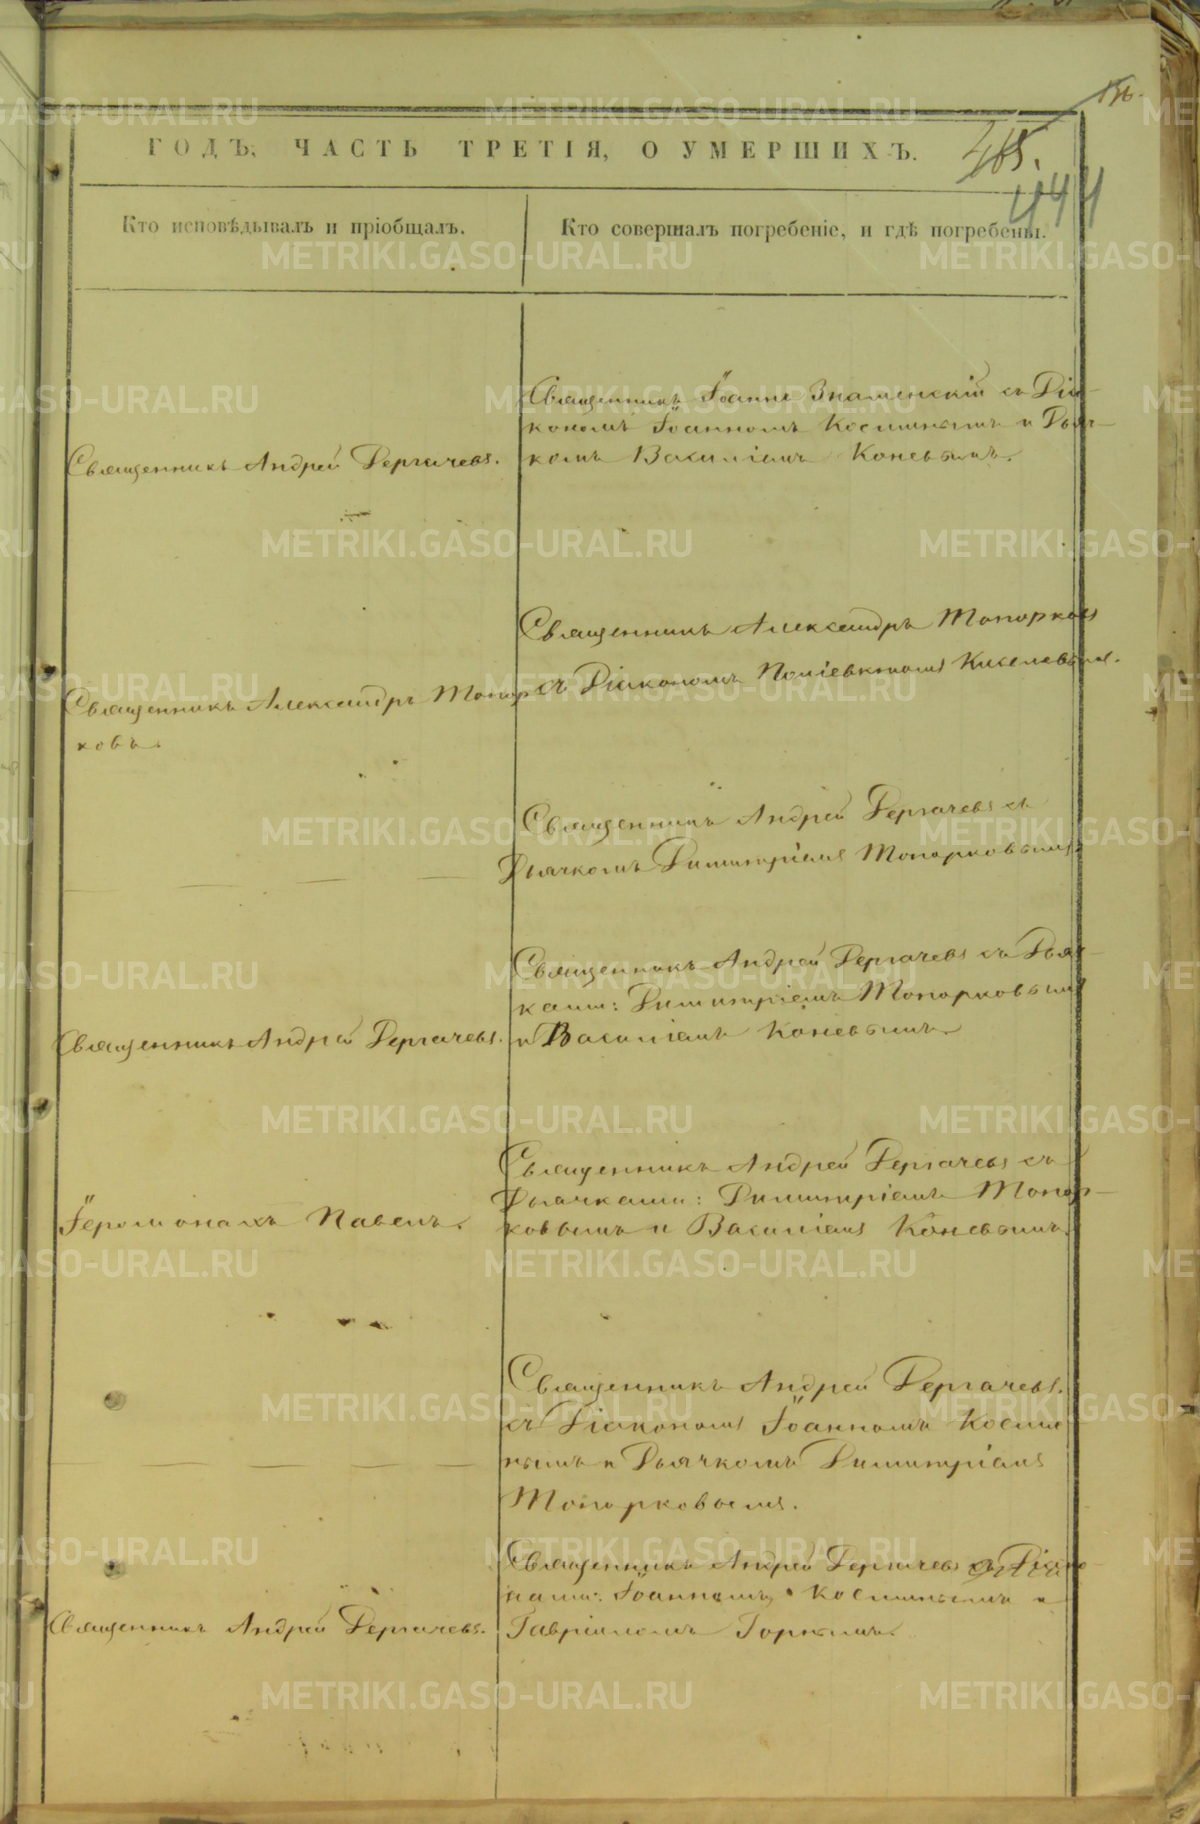 156.
ГОДЪ, ЧАСТЬ ТРЕТІЯ, О УМЕРШИХЪ.
465.
444
Кто исповѣдывалъ и пріобщалъ.
Кто совершалъ погребеніе, и гдѣ погребены.
Священникъ Андрей Дергачевъ.
Священникъ Іоаннъ Знаменскій съ Діа-
кономъ Іоанномъ Косминымъ и Дьяч-
комъ Василіемъ Коневымъ.
Священникъ Александръ Топор
ковъ.
Священникъ Александръ Топорковъ
съ Діакономъ Поліевктомъ Киселевымъ.
Священникъ Андрей Дергачевъ съ
Дьячкомъ Димитріемъ Топорковымъ.
Священникъ Андрей Дергачевъ.
Священникъ Андрей Дергачевъ съ Дьяч-
ками: Димитріемъ Топорковымъ
и Василіемъ Коневымъ.
Іеромонахъ Павелъ.
Священникъ Андрей Дергачевъ съ
Дьячками: Димитріемъ Топор-
ковымъ и Василіемъ Коневымъ.
Священникъ Андрей Дергачевъ.
съ Діакономъ Іоанномъ Косми
нымъ и Дьячкомъ Димитріемъ
Топорковымъ.
Священникъ Андрей Дергачевъ.
Священникъ Андрей Дергачевъ съ Діако-
нами: Іоанномъ Косминымъ и
Гавріиломъ Горнымъ.
METRIKI.GASO-URAL.RU